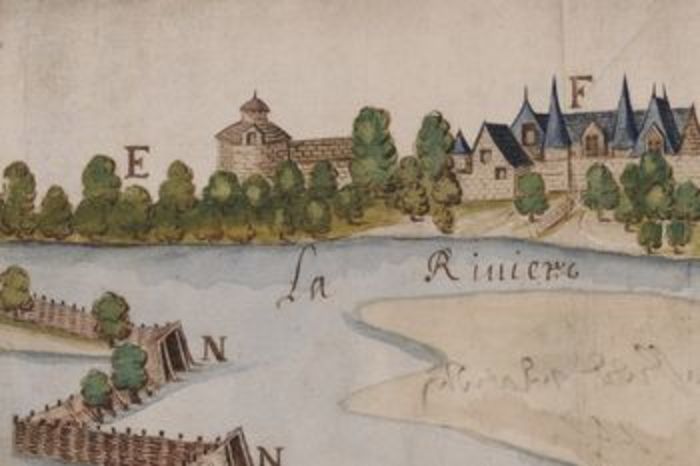 F
E
La Riuiere
N
N